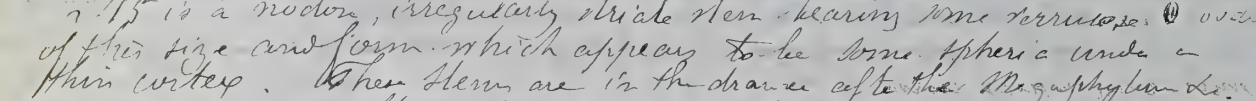 15 is a nodose, irregularly striate stem bearing some verrucose
of this size and form which appears to be some spheria under a
thin cortex. These stems are in the drawer after the Megaphytum &c.